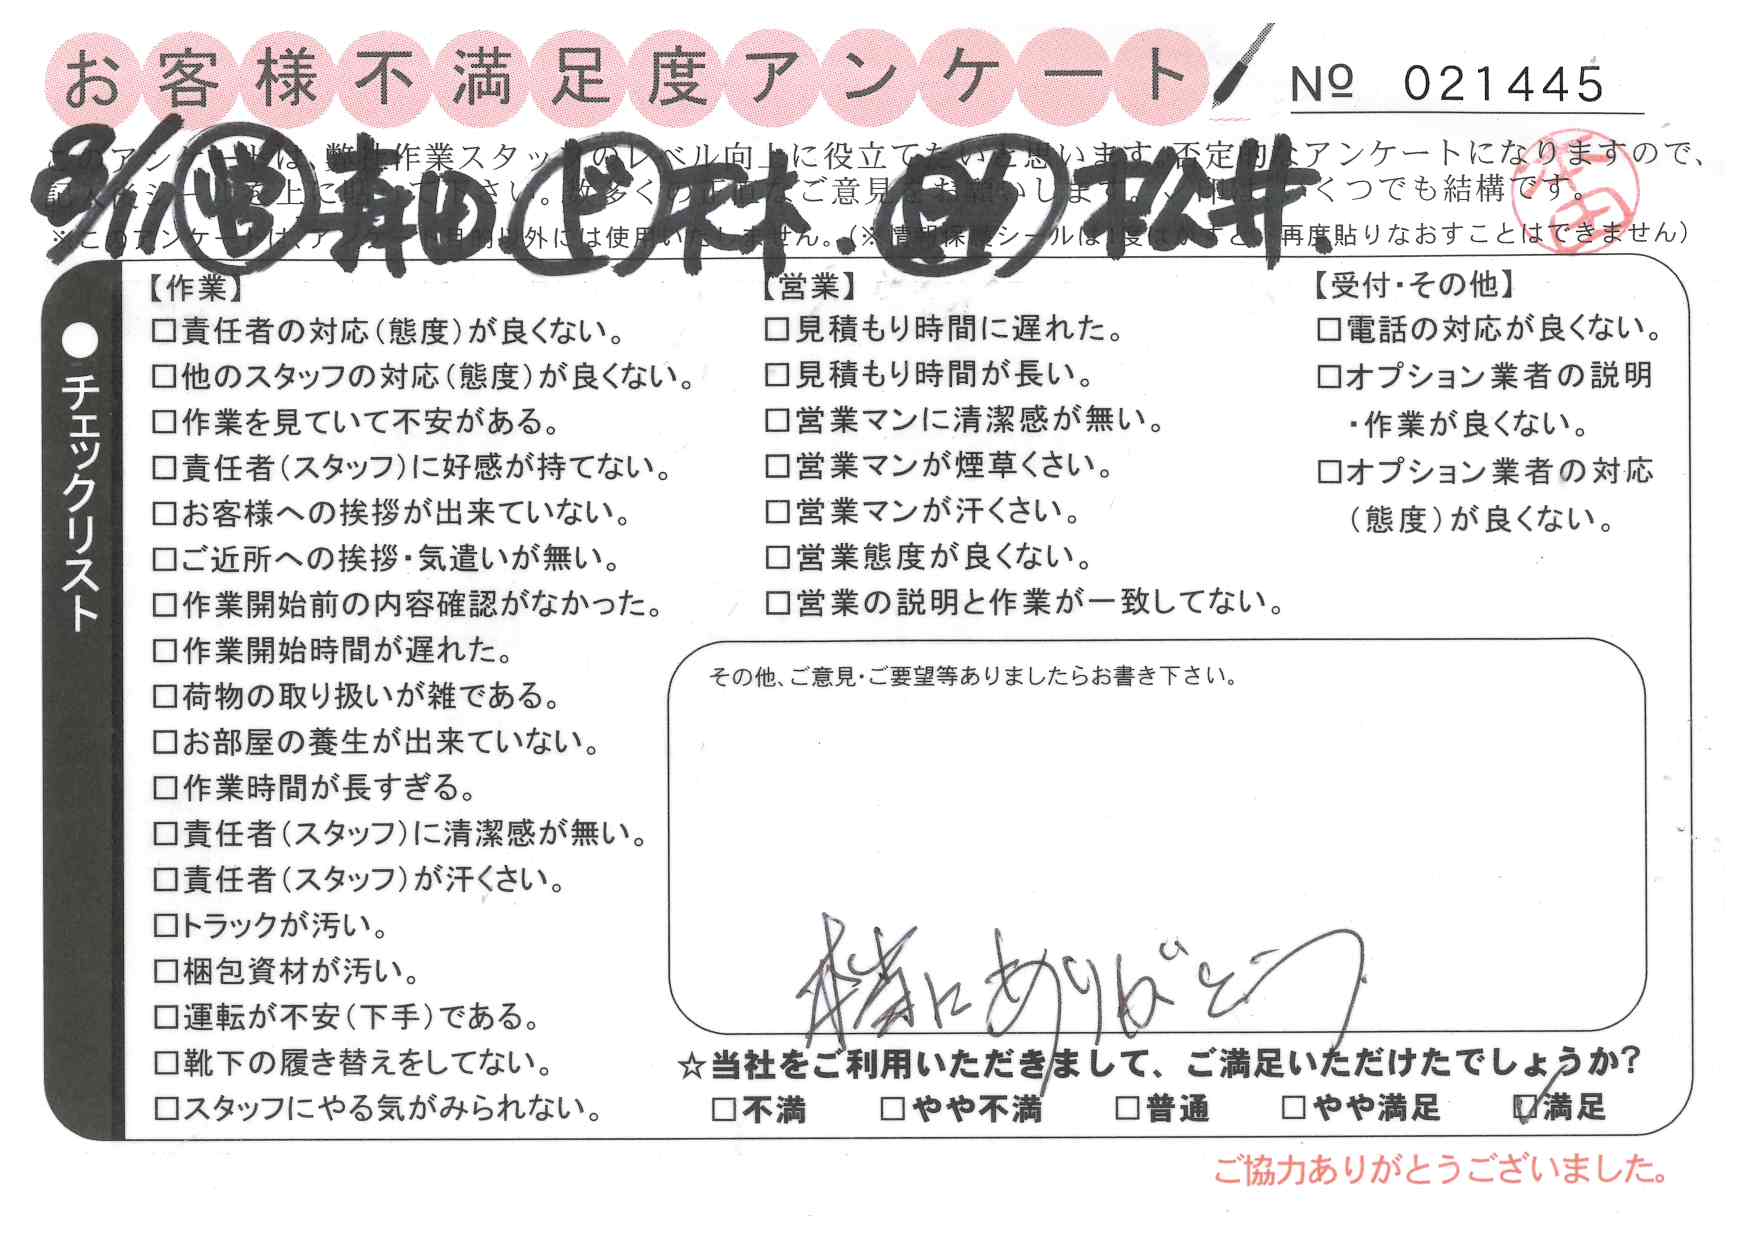 お客様不満足度アンケート
Nº 021445
このアンケートは、弊社作業スタッフのレベル向上に役立てたいと思います。否定的なアンケートになりますので、
8/11 営 ド 松井
※このアンケートは、アンケート目的以外には使用いたしません。(※情報保護シールは1度はがすと、再度貼りなおすことはできません)
●チェックリスト
【作業】
□責任者の対応(態度)が良くない。
□他のスタッフの対応(態度)が良くない。
□作業を見ていて不安がある。
□責任者(スタッフ)に好感が持てない。
□お客様への挨拶が出来ていない。
□ご近所への挨拶・気遣いが無い。
□作業開始前の内容確認がなかった。
□作業開始時間が遅れた。
□荷物の取り扱いが雑である。
□お部屋の養生が出来ていない。
□作業時間が長すぎる。
□責任者(スタッフ)に清潔感が無い。
□責任者(スタッフ)が汗くさい。
□トラックが汚い。
□梱包資材が汚い。
□運転が不安(下手)である。
□靴下の履き替えをしてない。
□スタッフにやる気がみられない。
【営業】
□見積もり時間に遅れた。
□見積もり時間が長い。
□営業マンに清潔感が無い。
□営業マンが煙草くさい。
□営業マンが汗くさい。
□営業態度が良くない。
□営業の説明と作業が一致してない。
【受付・その他】
□電話の対応が良くない。
□オプション業者の説明
・作業が良くない。
□オプション業者の対応
(態度)が良くない。
その他、ご意見・ご要望等ありましたらお書き下さい。
様にありがとう
☆当社をご利用いただきまして、ご満足いただけたでしょうか?
□不満 □やや不満 □普通 □やや満足 ☑満足
ご協力ありがとうございました。